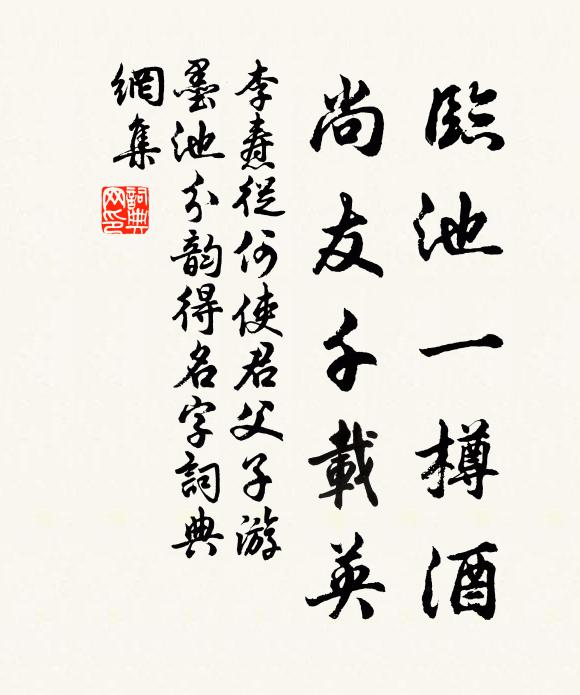 臨池一樽酒
尚友千載英
李燾從何使君父子游
墨池分韵得名字詞典
網集
詞典
网印